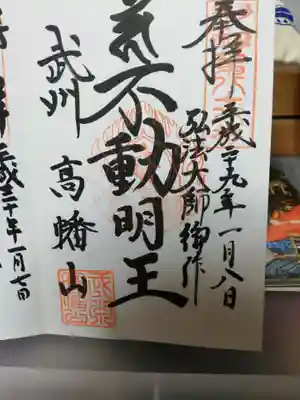 奉拝 平成二十九年一月八日
弘法大師御作
不動明王
武州 高幡山
平成三十年一月七日